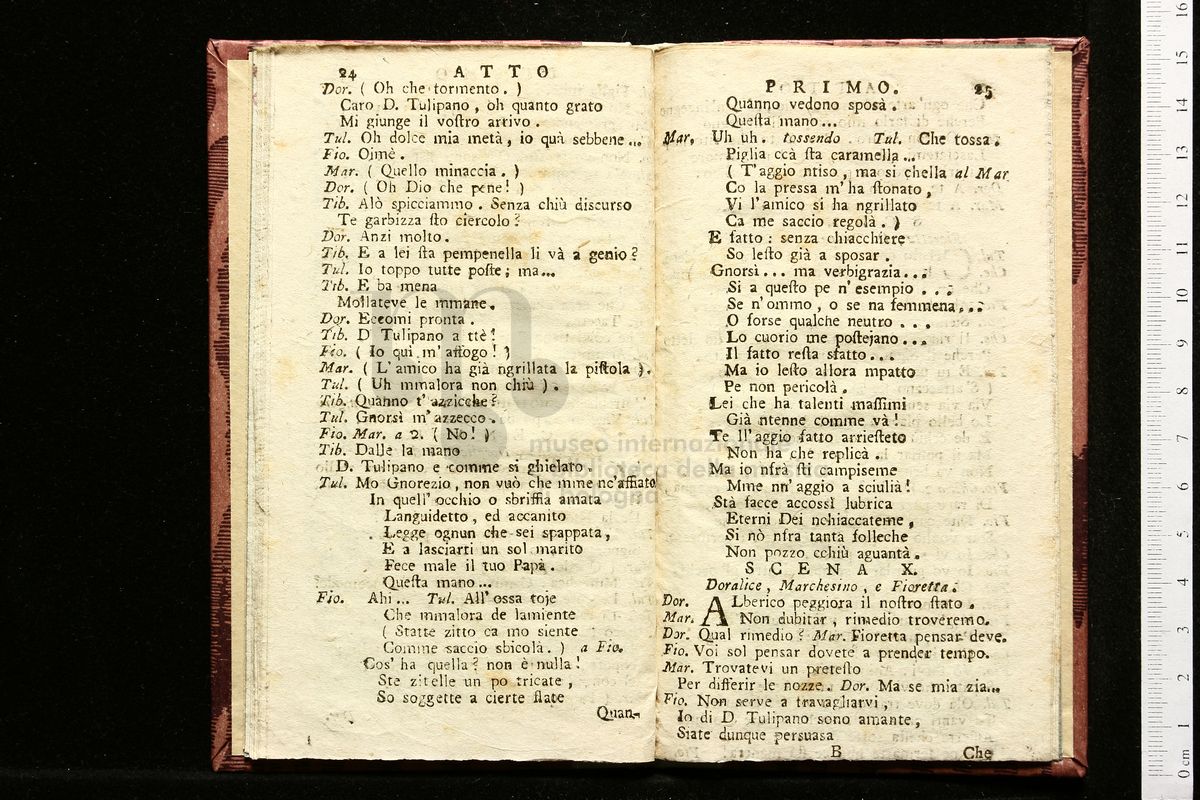 24 ATTO
Dor. ( Oh che tormento. )
Caro D. Tulipano, oh quanto grato
Mi giunge il vostro arrivo.
Tul. Oh dolce mia metà, io quà sebbene...
Fio. Oimè.
Mar. ( Quello minaccia. )
Dor. ( Oh Dio che pene! )
Tib. Alò spicciammo. Senza chiù discurso
Te garbizza sto ciercolo?
Dor. Anzi molto.
Tib. E a lei sta pempenella li và a genio?
Tul. Io toppo tutte poste; ma...
Tib. E ba mena
Mollateve le mmane.
Dor. Eccomi pronta.
Tib. D Tulipano a ttè!
Fio. ( Io qui m'affogo! )
Mar. ( L'amico ha già ngrillata la pistola ).
Tul. ( Uh mmalora non chiù ).
Tib. Quanno t'azzicche?
Tul. Gnorsì m'azzecco.
Fio. Mar. a 2. ( No! )
Tib. Dalle la mano
D. Tulipano e comme si ghielato.
Tul. Mo Gnorezio, non vuò che mme nc'affiato
In quell'occhio o sbriffia amata
Languidetto, ed accanito
Legge ognun che sei spappata,
E a lasciarti un sol marito
Fece male il tuo Papà.
Questa mano...
Fio. Ahi... Tul. All'ossa toje
Che mmalora de lamiente
( Statte zitto ca mo siente
Comme saccio sbicolà. ) a Fio.
Cos'ha quella? non è nulla!
Ste zitelle un po tricate,
So soggette a cierte flate
Quan-
PRIMO. 25
Quanno vedono sposà.
Questa mano...
Mar. Uh uh. tossendo. Tul. Che tossa.
Piglia ccà sta caramella...
( T'aggio ntiso, ma si chella al Mar
Co la pressa m'ha stonato,
Vi l'amico si ha ngrillato
Ca me saccio regolà. )
E fatto: senza chiacchiere
So lesto già a sposar.
Gnorsì... ma verbigrazia...
Si a questo pe n'esempio...
Se n'ommo, o se na femmena...
O forse qualche neutro...
Lo cuorio me postejano...
Il fatto resta sfatto...
Ma io lesto allora mpatto
Pe non pericolà.
Lei che ha talenti massimi
Già ntenne comme và!
Te ll'aggio fatto arriesteto
Non ha che replicà.
Ma io nfrà sti campiseme
Mme nn'aggio a sciulià!
Stà facce accossì lubrica
Eterni Dei nchiaccateme,
Si nò nfra tanta folleche
Non pozzo cchiù aguantà.
SCENA X.
Doralice, Marchesino, e Fioretta.
Dor. ALberico peggiora il nostro stato.
Mar. Non dubitar, rimedio troveremo.
Dor. Qual rimedio? Mar. Fioretta pensar deve.
Fio. Voi sol pensar dovete a prender tempo.
Mar. Trovatevi un pretesto
Per differir le nozze. Dor. Ma se mia zia...
Fio. Non serve a travagliarvi,
Io di D. Tulipano sono amante,
Siate dunque persuasa
B Che
museo internazionale
biblioteca della musica
bologna
0 cm 1 2 3 4 5 6 7 8 9 10 11 12 13 14 15 16